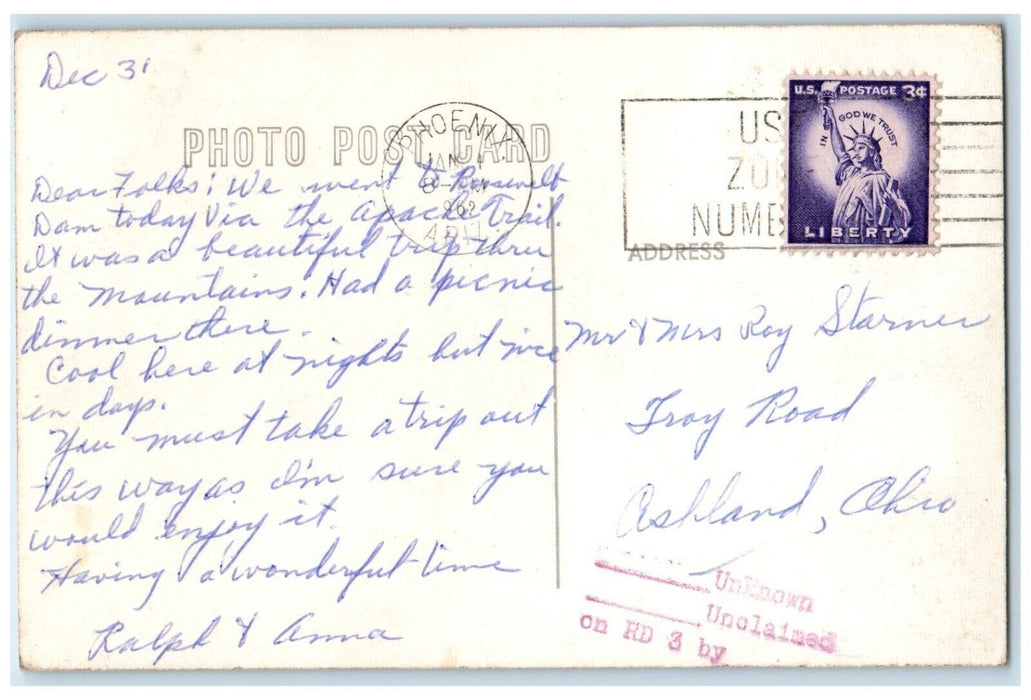 Dec 31
PHOTO POST CARD
PHOENIX
JAN 1
8
1962
ARIZ
US
ZO
NUMBE
U.S. POSTAGE 3¢
IN GOD WE TRUST
LIBERTY
ADDRESS
Dear Folks: We went to Roosevelt
Dam today via the Apache Trail.
It was a beautiful trip thru
the mountains. Had a picnic
dinner there.
Cool here at nights but nice
in days.
You must take a trip out
this way as I'm sure you
would enjoy it.
Having a wonderful time
Ralph & Anna
Mr & Mrs Roy Starner
Troy Road
Ashland, Ohio
Unknown
Unclaimed
on RD 3 by